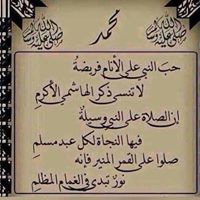 محمد
صلى الله عليه وسلم
صلى الله عليه وسلم
حبّ النبي على الأنام فريضةٌ
لا تنسى ذكر الهاشمي الأكرمِ
إن الصلاة على النبي وسيلةٌ
فيها النجاة لكل عبد مسلمِ
صلوا على القمر المنير فإنه
نورٌ تبدى في الغمام المظلمِ